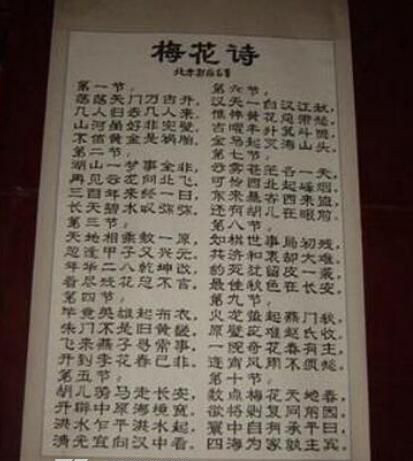 梅花诗
北宋邵
第一节:
荡荡天门万古开,
几人归去几人来。
山河虽好非完璧,
不信黄金是祸胎。
第二节:
湖山一梦事全非,
再见云向北飞。
三百年来终一日,
长天碧水叹弥弥。
第三节:
天地相乘数一原,
忽逢甲子又兴元。
年华二八乾坤改,
看尽残花总不言。
第四节:
毕竟英雄起布衣,
朱门不是旧黄畿。
飞来燕子寻常事,
开到李花春已非。
第五节:
胡儿骑马走长安,
开辟中原海境宽。
洪水乍平洪水起,
清光宜向汉中看。
第六节:
汉天一白汉江秋,
憔悴黄花总带愁。
吉曜半升箕斗隐,
金乌起灭海山头。
第七节:
云雾苍茫各一天,
可怜西北起烽烟。
东来暴客西来盗,
还有胡儿在眼前。
第八节:
如棋世事局初残,
共济和衷却大难。
豹死犹留皮一袭,
最佳秋色在长安。
第九节:
火龙蛰起燕门秋,
原璧应难赵氏收。
一院奇花春有主,
连宵风雨不须愁。
第十节:
数点梅花天地春,
欲将剥复问前因。
寰中自有承平日,
四海为家孰主宾。